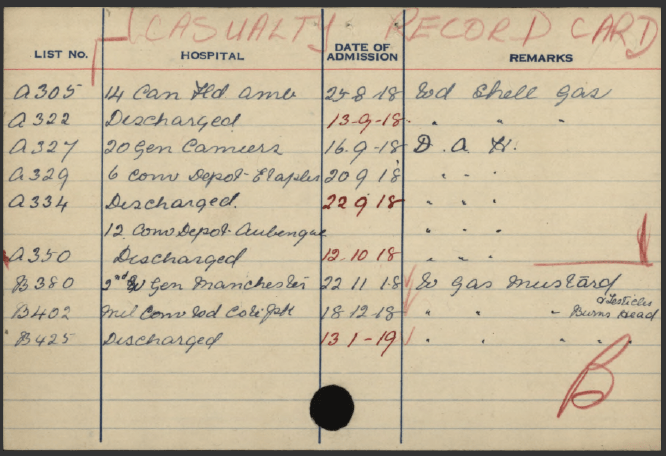 CASUALTY RECORD CARD
LIST NO. HOSPITAL DATE OF ADMISSION REMARKS
A305 14 Can Fld amb 25-8-18 Wd Shell Gas
A322 Discharged 13-9-18 " " "
A327 20 Gen Camiers 16-9-18 D. A. H.
A329 6 Conv Depot-Etaples 20 9 18 " " "
A334 Discharged. 22 9 18 " " "
12 Conv Depot-Aubengue " " "
A350 Discharged 12.10 18 " " "
B380 2nd W Gen Manchester 22 11 18 W Gas Mustard
& Testicles
B402 Mil Conv 18-12-18 " " " Burns Head
B425 Discharged 13 1-19 " " "
B